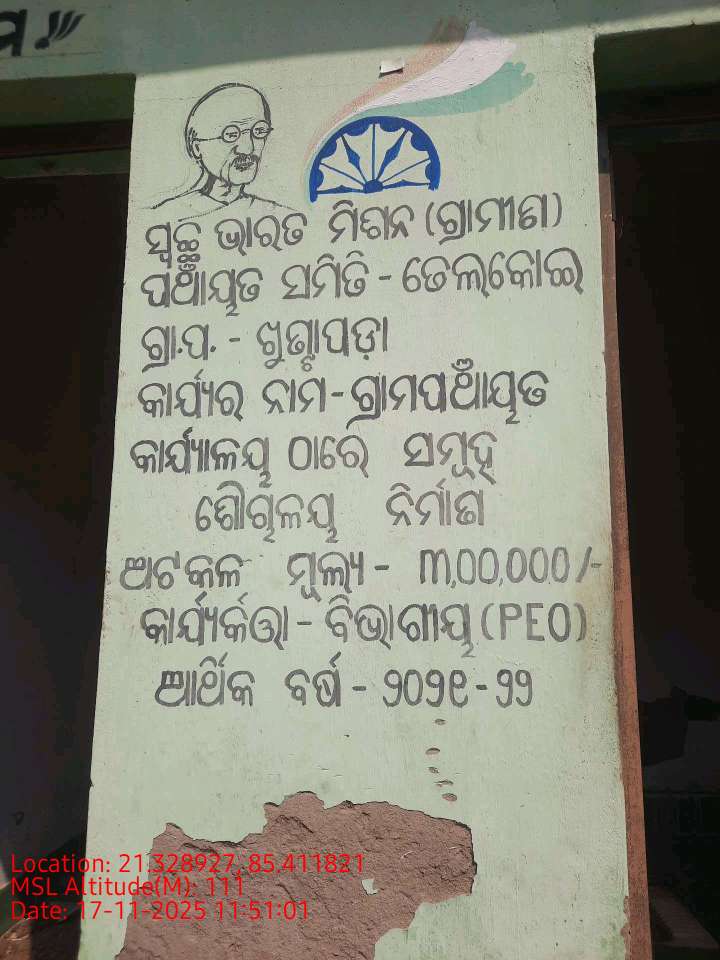 ସ୍ୱଚ୍ଛ ଭାରତ ମିଶନ (ଗ୍ରାମୀଣ)
ପଞ୍ଚାୟତ ସମିତି - ତେଲକୋଇ
ଗ୍ରା.ପ. - ଖୁଣ୍ଟାପଡ଼ା
କାର୍ଯ୍ୟର ନାମ - ଗ୍ରାମପଞ୍ଚାୟତ
କାର୍ଯ୍ୟାଳୟ ଠାରେ ସମୂହ
ଶୌଚାଳୟ ନିର୍ମାଣ
ଅଟକଳ ମୂଲ୍ୟ - ୩,00,000/-
କାର୍ଯ୍ୟକର୍ତ୍ତା - ବିଭାଗୀୟ (PEO)
ଆର୍ଥିକ ବର୍ଷ - ୨୦୨୧ - ୨୨
Location: 21.328927, 85.411821
MSL Altitude(M): 111
Date: 17-11-2025 11:51:01